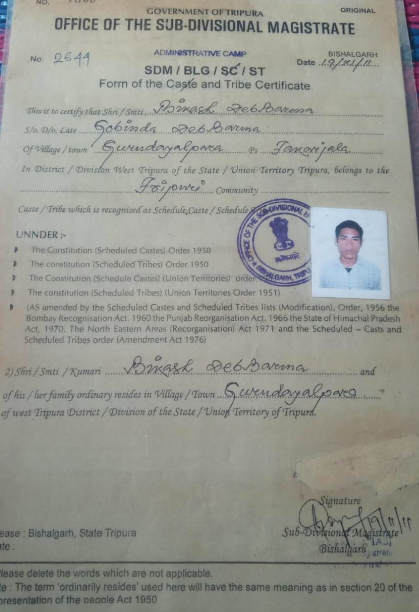 NO.
GOVERNMENT OF TRIPURA
ORIGINAL
OFFICE OF THE SUB-DIVISIONAL MAGISTRATE
ADMINISTRATIVE CAMP
BISHALGARH
No. 2644
Date 19/XI/11
SDM / BLG / SC / ST
Form of the Caste and Tribe Certificate
This is to certify that Shri / Smti Bikash DebBarma
S/o, D/o, Late Gobinda DebBarma
Of Village / town Gurudayalpara Ps Takarjala
In District / Division West Tripura of the State / Union Territory Tripura, belongs to the
Tripuri Community
Caste / Tribe which is recognised as Schedule,Caste / Schedule
OFFICE OF THE SUB-DIVISIONAL
BISHALGARH, TRIPURA
UNNDER :-
The Constitution (Scheduled Castes) Order 1950
The constitution (Scheduled Tribes) order 1950
The Constitution (Scheduled Castes) (Union Territories) order
The constitution (Scheduled Tribes) (Union Territories Order 1951)
(AS amended by the Scheduled Castes and Scheduled Tribes lists (Modification), Order, 1956 the
Bombay Recognisation Act. 1960 the Punjab Reorganisation Act. 1966 the State of Himachal Pradesh
Act, 1970. The North Eastern Areas (Recorganisation) Act 1971 and the Scheduled – Casts and
Scheduled Tribes order (Amendment Act 1976)
2) Shri / Smti / Kumari Bikash DebBarma and
of his / her family ordinary resides in Village / Town Gurudayalpara
of west Tripura District / Division of the State / Union Territory of Tripura.
Signature
19/11/11
Sub-Divisional Magistrate
Bishalgarh
ease : Bishalgarh, State Tripura
ate :
Please delete the words which are not applicable.
te : The term 'ordinarily resides' used here will have the same meaning as in section 20 of the
presentation of the people Act 1950